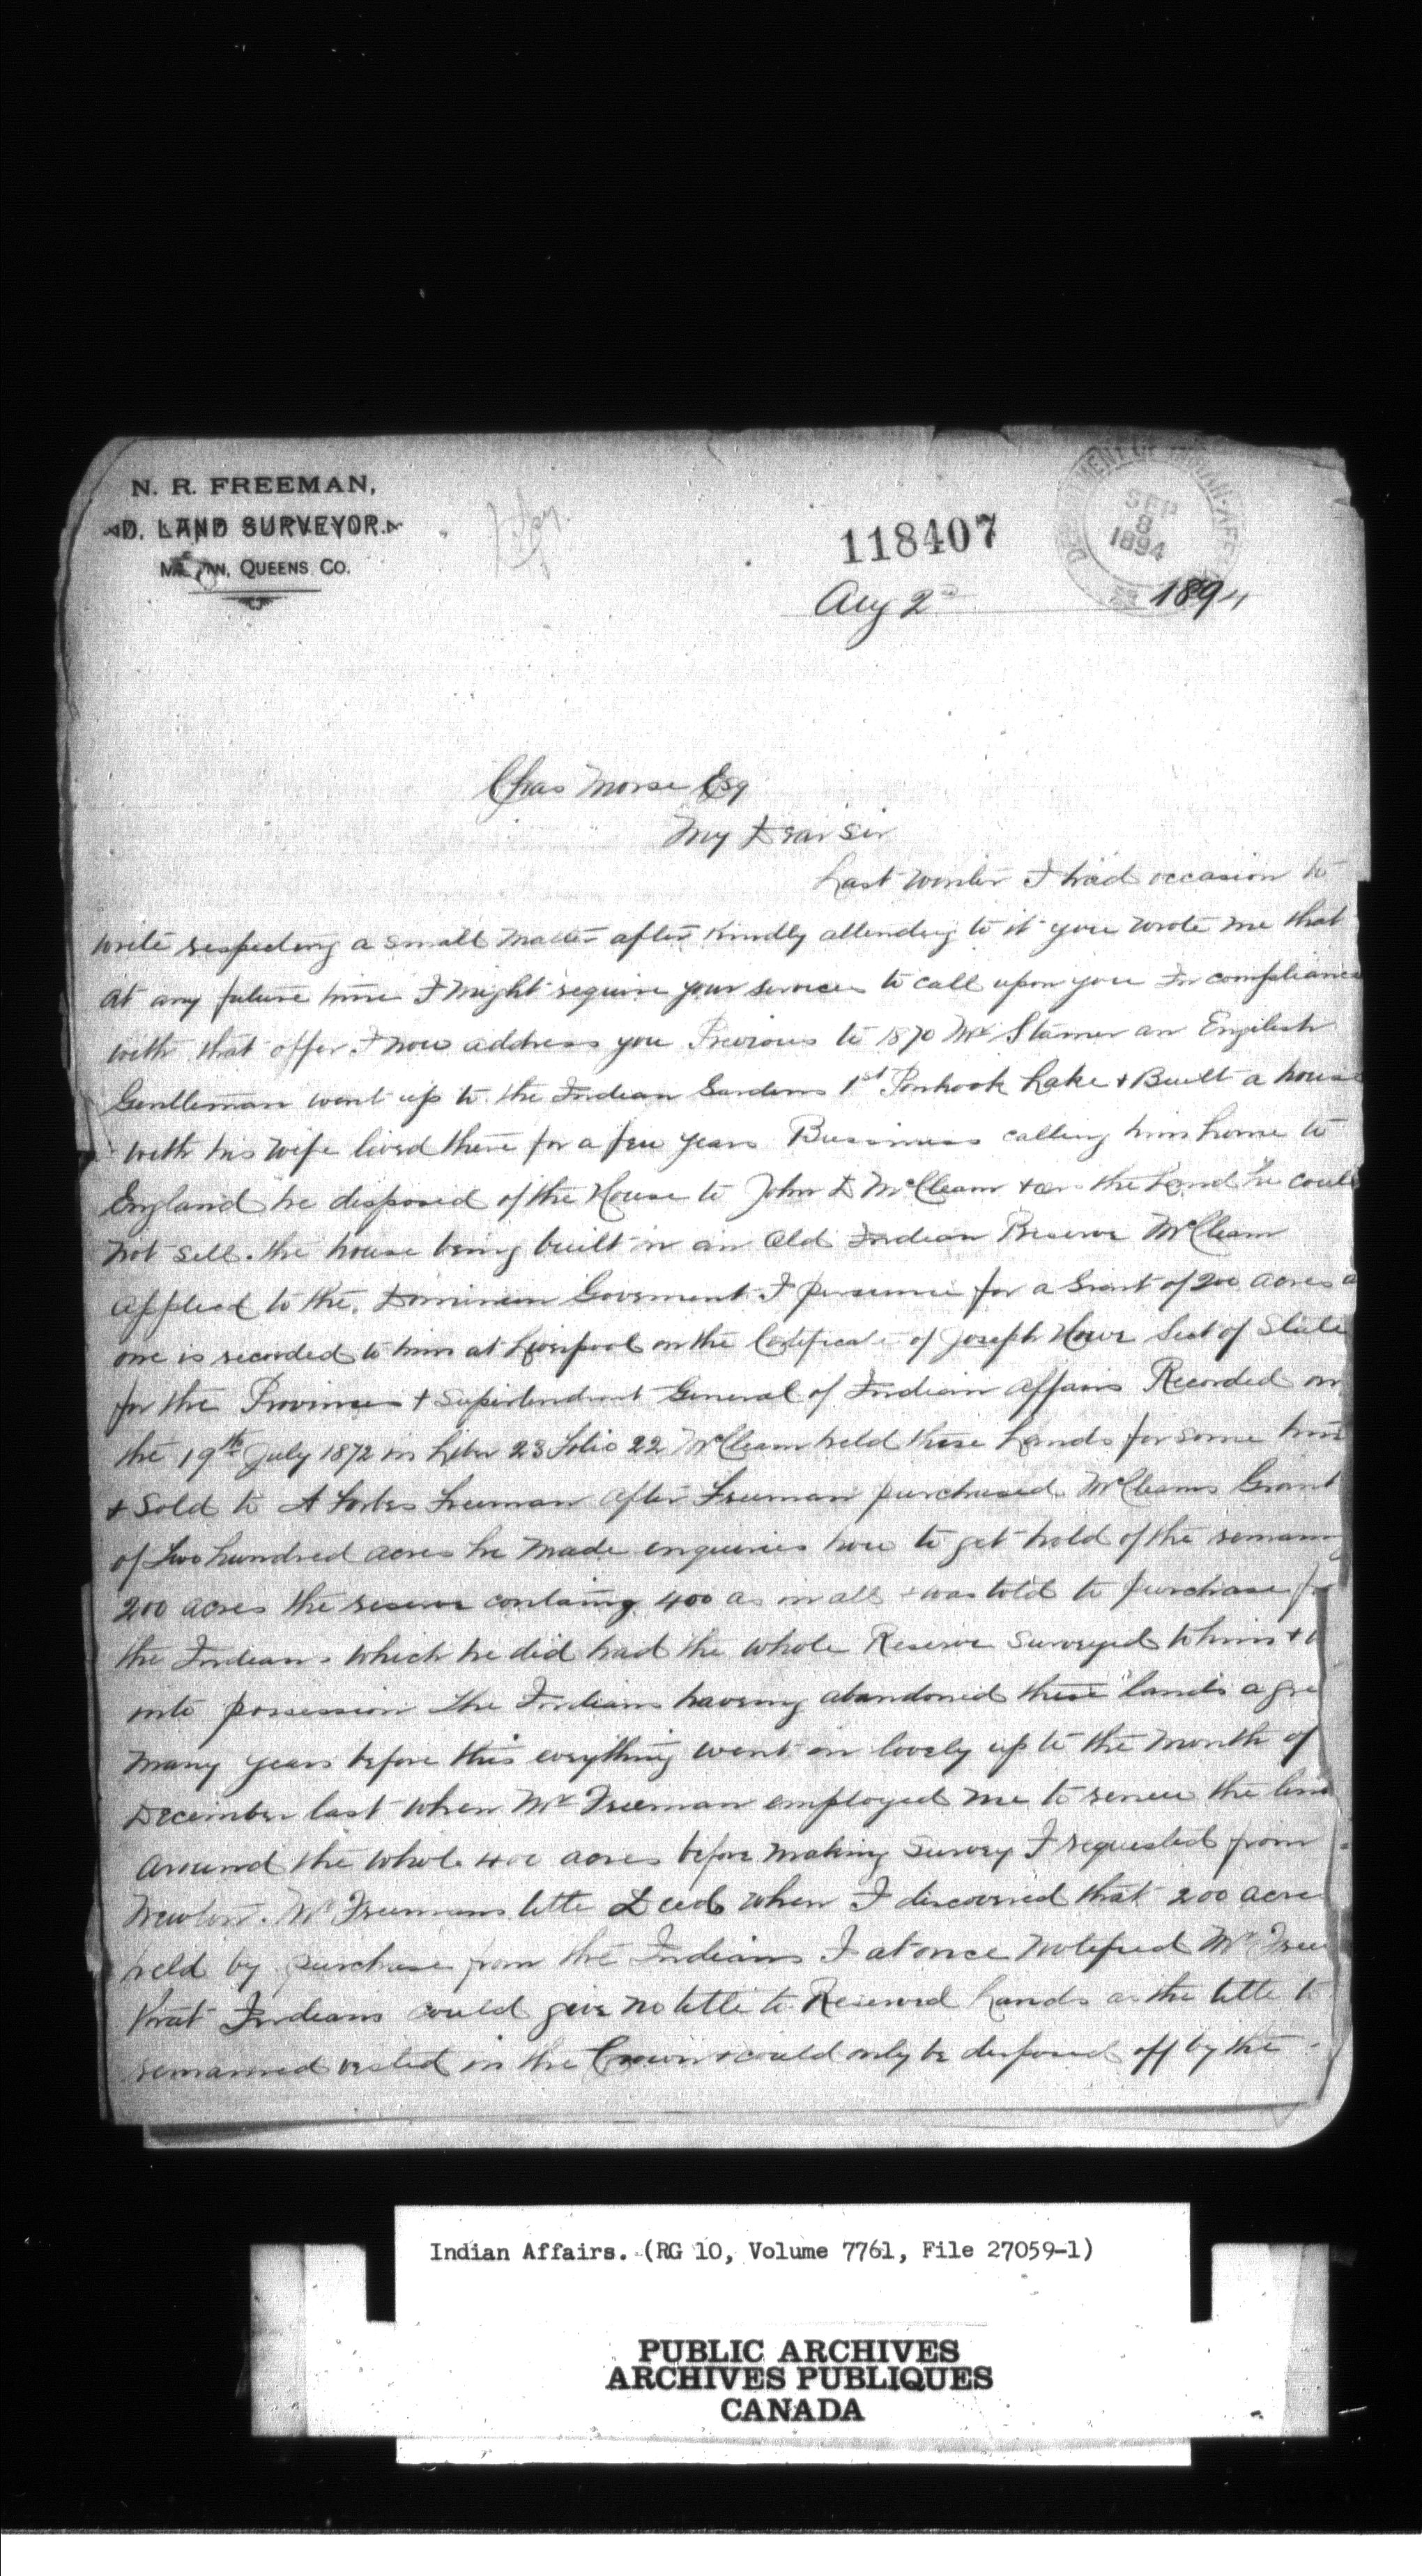 N. R. FREEMAN,
D. LAND SURVEYOR.
QUEENS CO.
118407
DEPARTMENT OF INDIAN AFFAIRS
SEP
8
1894
Aug 2nd 1894
Chas Morse Esq
My Dear Sir
Last winter I had occasion to
write respecting a small matter after kindly attending to it you wrote me that
at any future time I might require your services to call upon you In compliance
with that offer I now address you Previous to 1870 Mr Stamer an English
Gentleman went up to the Indian Gardens 1st Ponhook Lake + Built a house
with his wife lived there for a few years Bussiness calling him home to
England he disposed of the House to John D McCleam + as the Land he could
not sell. the house being built on an Old Indian Reserve McCleam
applied to the Dominion Goverment I persume for a Grant of 200 acres a
one is recorded to him at Liverpool on the Certificate of Joseph Howe Sect of State
for the Provinces + Superintendent General of Indian Affairs Recorded on
the 19th July 1872 in Liber 23 Folio 22 McCleam held these Lands for some time
+ Sold to A Forbes Freeman after Freeman purchased McCleams Grant
of two hundred acres he made enquiries how to get hold of the
200 acres the reserve containg 400 as in all + was told to purchase
the Indians which he did had the whole Reserve Surveyed to him +
into possession the Indians having abandoned these lands a
many years before this everything went on lovely up to the month of
December last when Mr Freeman employed me to renew the line
around the whole 400 acres before making Survey I requested from
Mr Freemans title Deeds when I discovered that 200 acres
held by purchase from the Indians I at once notified Mr
that Indians could give no title to Reserved Lands as the title to
remained vested in the Crown + could only be disposed off by the
Indian Affairs. (RG 10, Volume 7761, File 27059-1)
PUBLIC ARCHIVES
ARCHIVES PUBLIQUES
CANADA